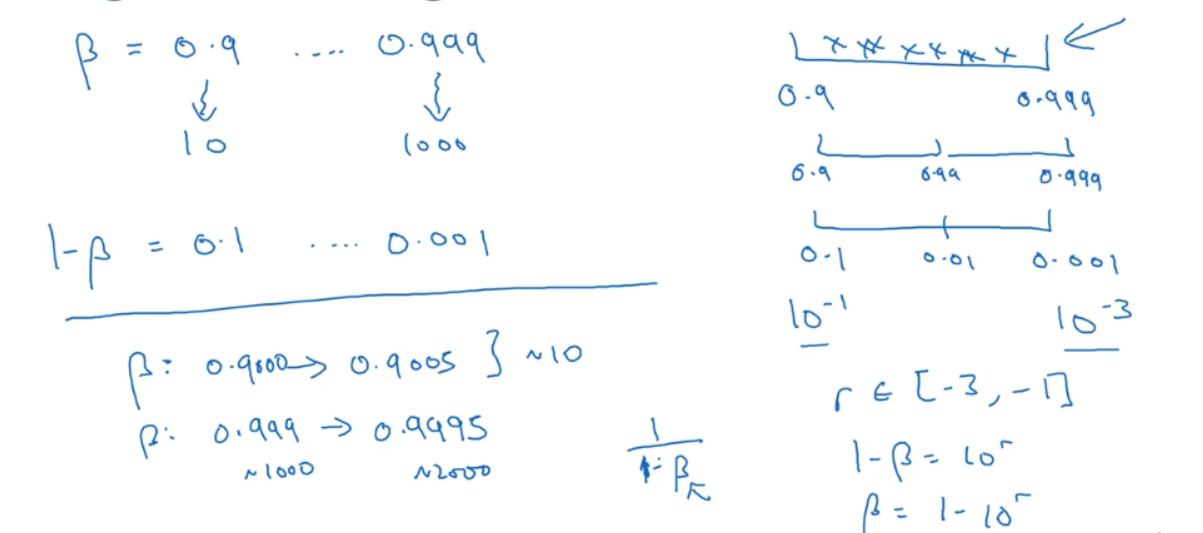 β = 0.9 .... 0.999
10 1000
1-β = 0.1 .... 0.001
β: 0.9000 → 0.9005 } ~10
β: 0.999 → 0.9995
~1000 ~2000
1
1-β
0.9 0.999
0.9 0.99 0.999
0.1 0.01 0.001
10^-1 10^-3
r ∈ [-3, -1]
1-β = 10^r
β = 1-10^r